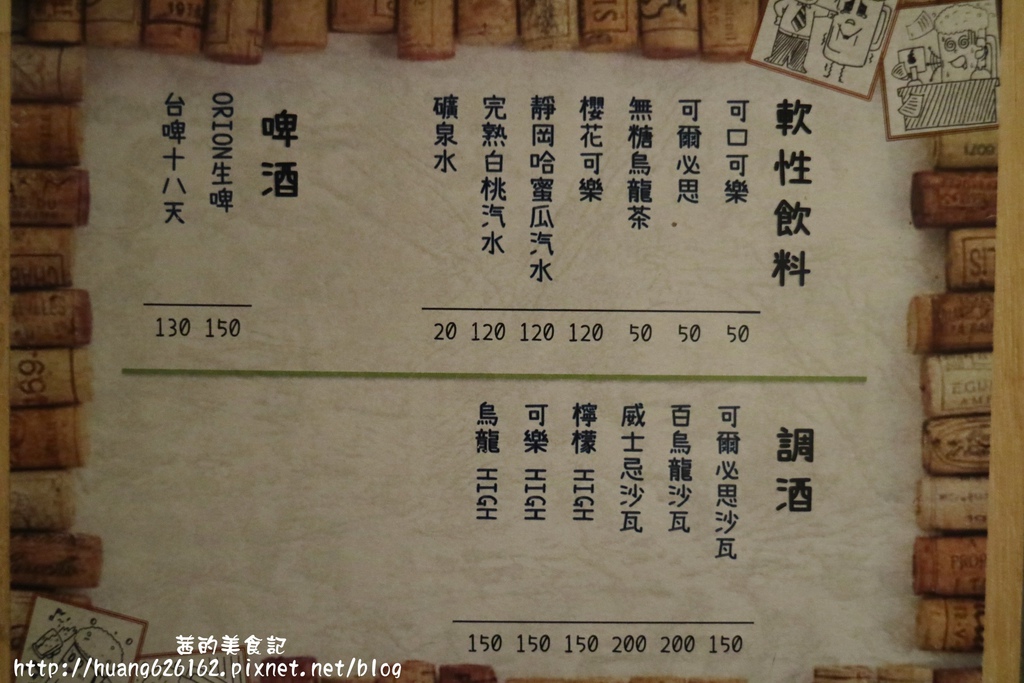 軟性飲料
可口可樂 50
可爾必思 50
無糖烏龍茶 50
櫻花可樂 120
靜岡哈蜜瓜汽水 120
完熟白桃汽水 120
礦泉水 20
啤酒
ORION生啤 150
台啤十八天 130
調酒
可爾必思沙瓦 150
百烏龍沙瓦 200
威士忌沙瓦 200
檸檬 HIGH 150
可樂 HIGH 150
烏龍 HIGH 150
茜的美食記
http://huang626162.pixnet.net/blog